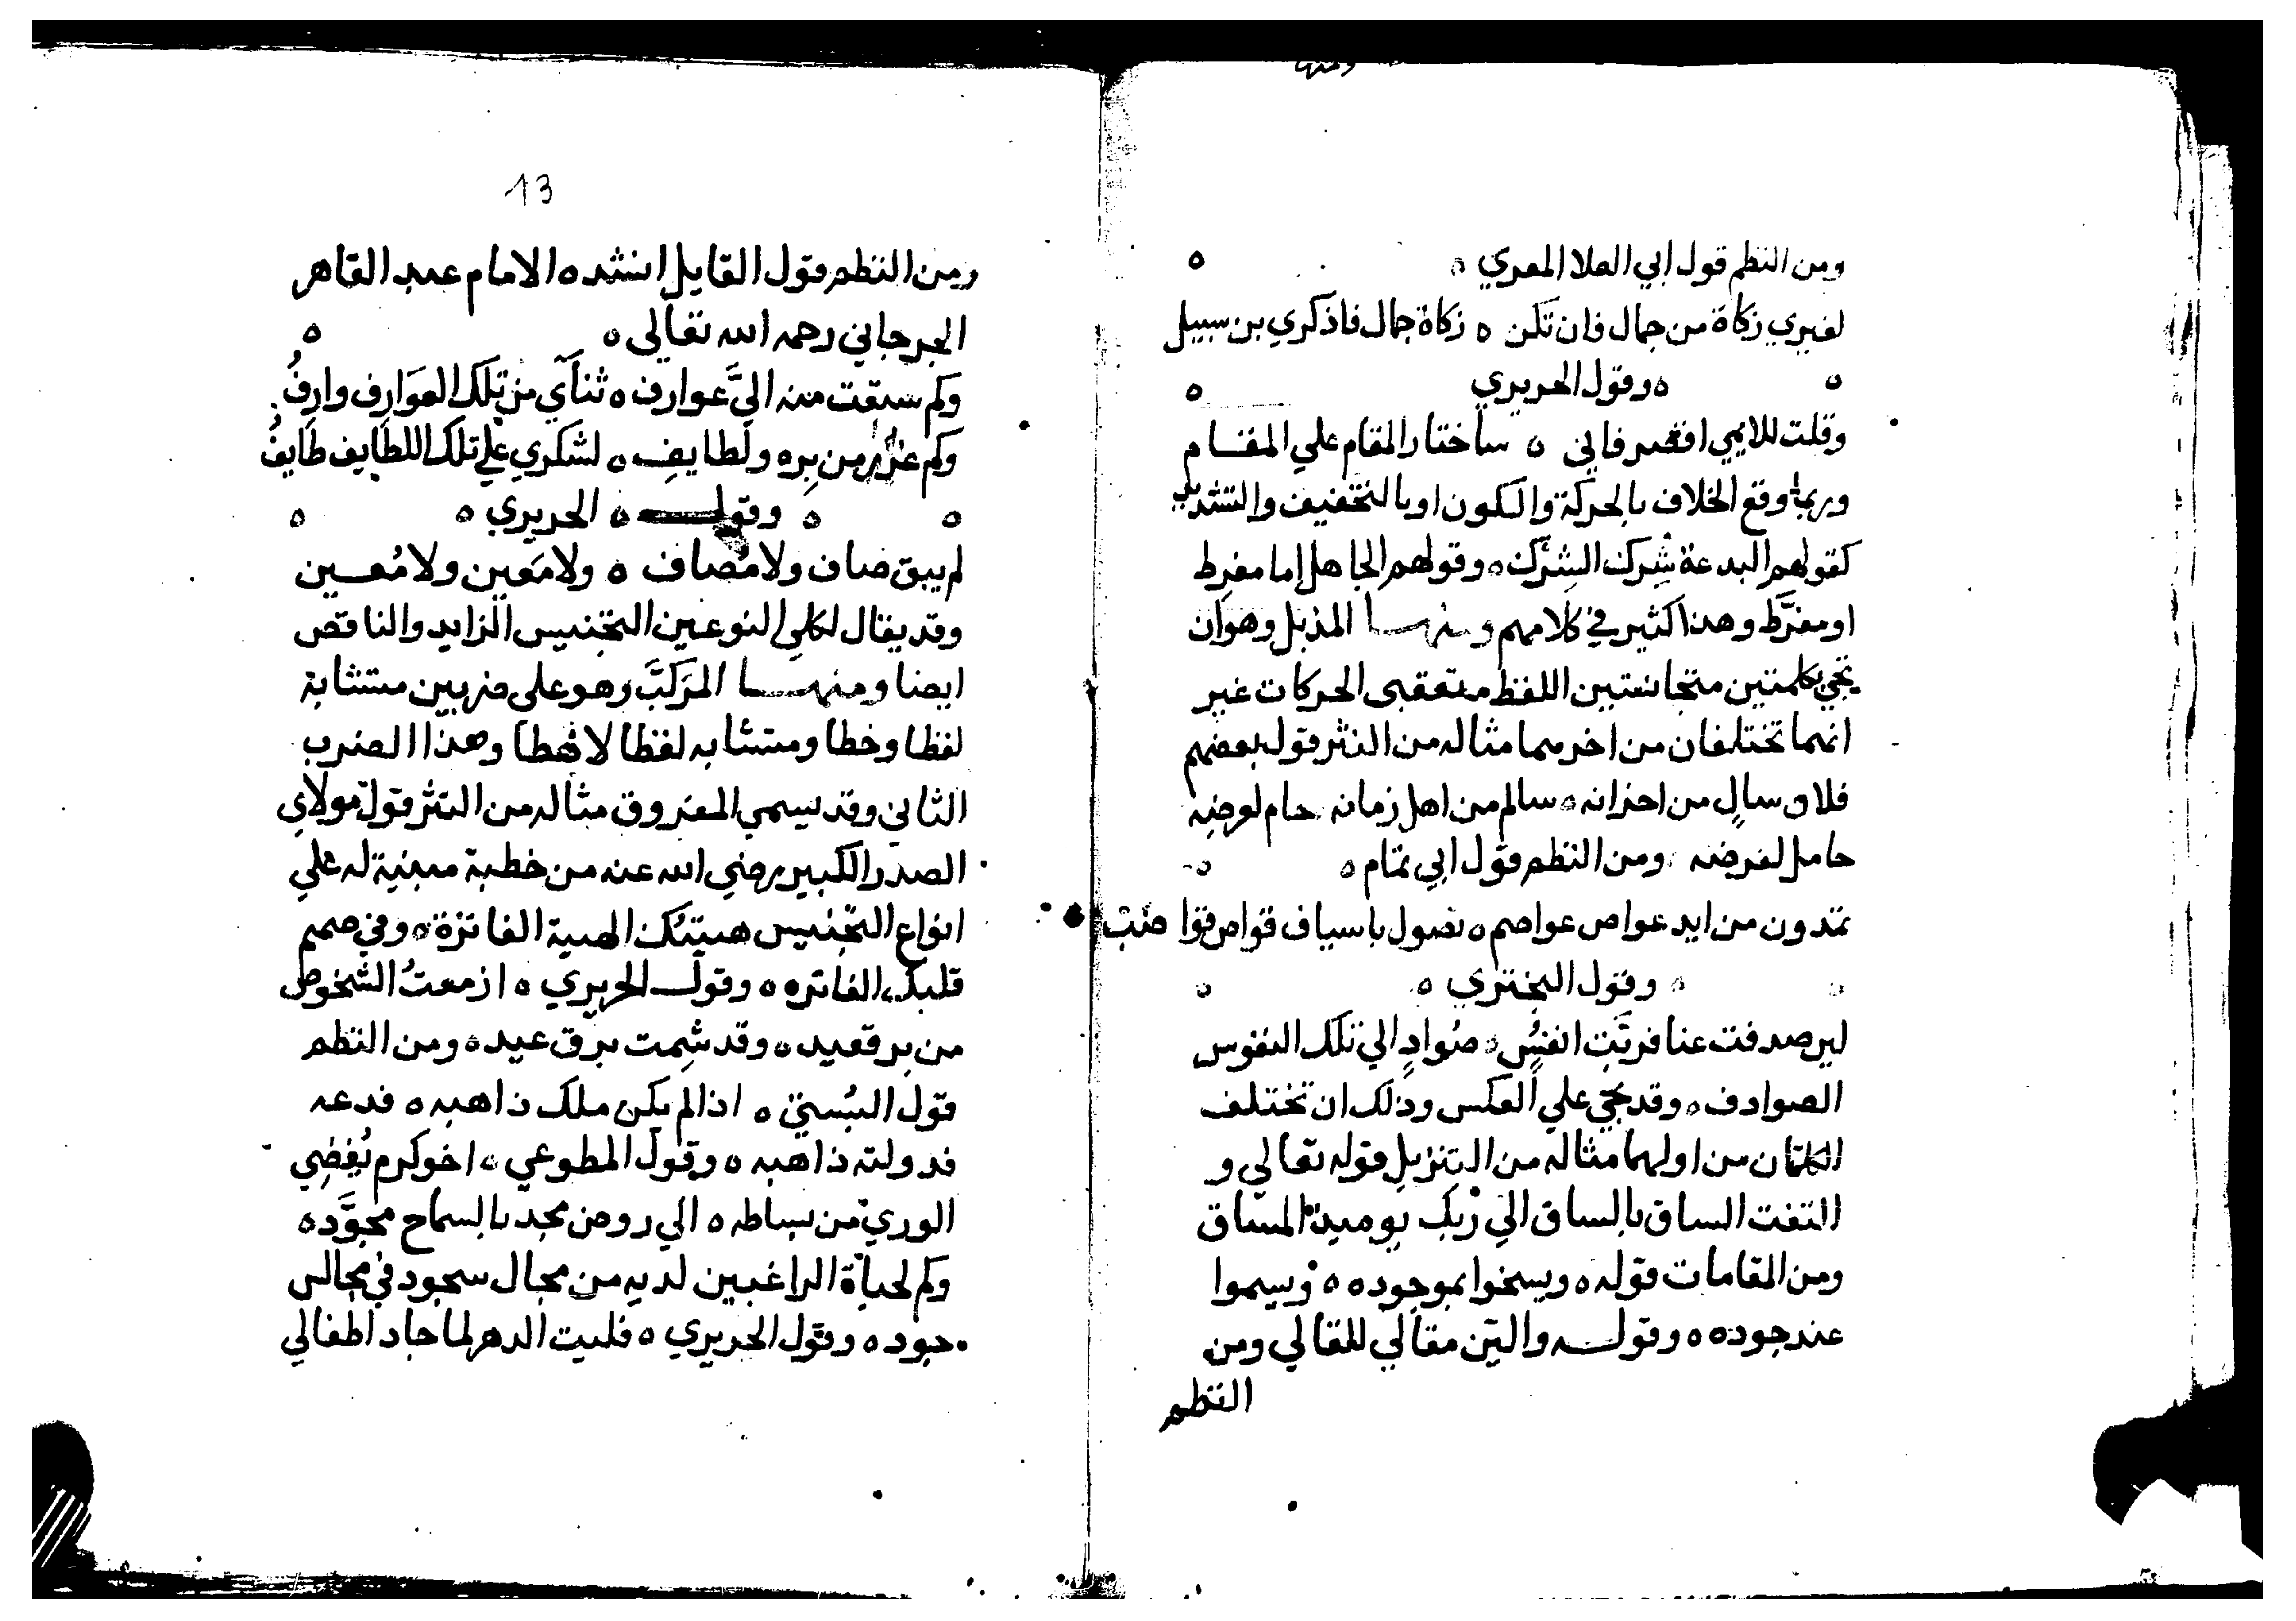 ومنها
ومن النظم قول ابي العلا المعري ه ه
لغيري زكاة من جمال فان تكن ه زكاة جمال فاذكري بن سبيل
ه وقول الحريري ه
وقلت للايمي اقصر فاني ه ساختار المقام علي المقام
وربما وقع الخلاف بالحركة والسكون او بالتخفيف والتشديد
كقولهم البدعة شرك الشرك ه وقولهم الجاهل إما مفرِط
او مفرَّط وهذا كثير في كلامهم ومنها المذيل وهو ان
تجي بكلمتين متجانستين اللفظ متفقتى الحركات غير
انهما تختلفان من اخرهما مثاله من النثر قول بعضهم
فلان سالٍ من احزانه ه سالم من اهل زمانه حام لعرضه
حامل لفرضه ومن النظم قول ابي تمام ه ه
تمدون من ايد عواص عواصم ه تصول باسياف قواص قواضب
ه وقول البختري ه ه
لين صدفت عنا فربَّت انفسٍ ه صَوادٍ الي تلك النفوس
الصوادف ه وقد تجي علي العكس وذلك ان تختلف
الكلمتان من اولهما مثاله من التنزيل قوله تعالي و
التفت الساق بالساق الي ربك يوميذ المساق
ومن المقامات قوله ه ويسخوا بموجوده ه ويسموا
عند جوده ه وقوله والتين مقالي للقالي ومن
النظم
13
ومن النظم قول القايل انشده الامام عبد القاهر
الجرجاني رحمه الله تعالي ه ه
وكم سبقت منه اليَّ عوارف ه ثناآي من تلك العوارف وارفُ
وكم غرر من بره ولطايف ه لشكري علي تلك اللطايف طايفُ
ه وقول ه الحريري ه ه
لم يبق صاف ولا مُصاف ه ولا مَعين ولا مُعين
وقد يقال لكلي النوعين التجنيس الزايد والناقص
ايضا ومنها المركبَّ وهو على ضربين متشابة
لفظا وخطا ومتشابه لفظا لا خطا وهذا الضرب
الثاني وقد يسمي المفروق مثاله من النثر قول مولاي
الصدر الكبير رضي الله عنه من خطبة مبنية له علي
انواع التجنيس هيبتك الهيبة الفاترة ه وفي صميم
قلبك الفاتره ه وقول الحريري ه ازمعتُ الشخوص
من برقعيد ه وقد شِمت برق عيد ه ومن النظم
قول البُستي ه اذا لم يكن ملك ذاهبه ه فدعه
فدولته ذاهبه ه وقول المطوعي ه اخو كرم يُفضي
الوري من بساطه ه الي روض مجد بالسماح مجوَّد ه
وكم لجباة الراغبين لديه من مجال سجود في مجالس
جود ه وقول الحريري ه فليت الدهر لما جاد اطفالي